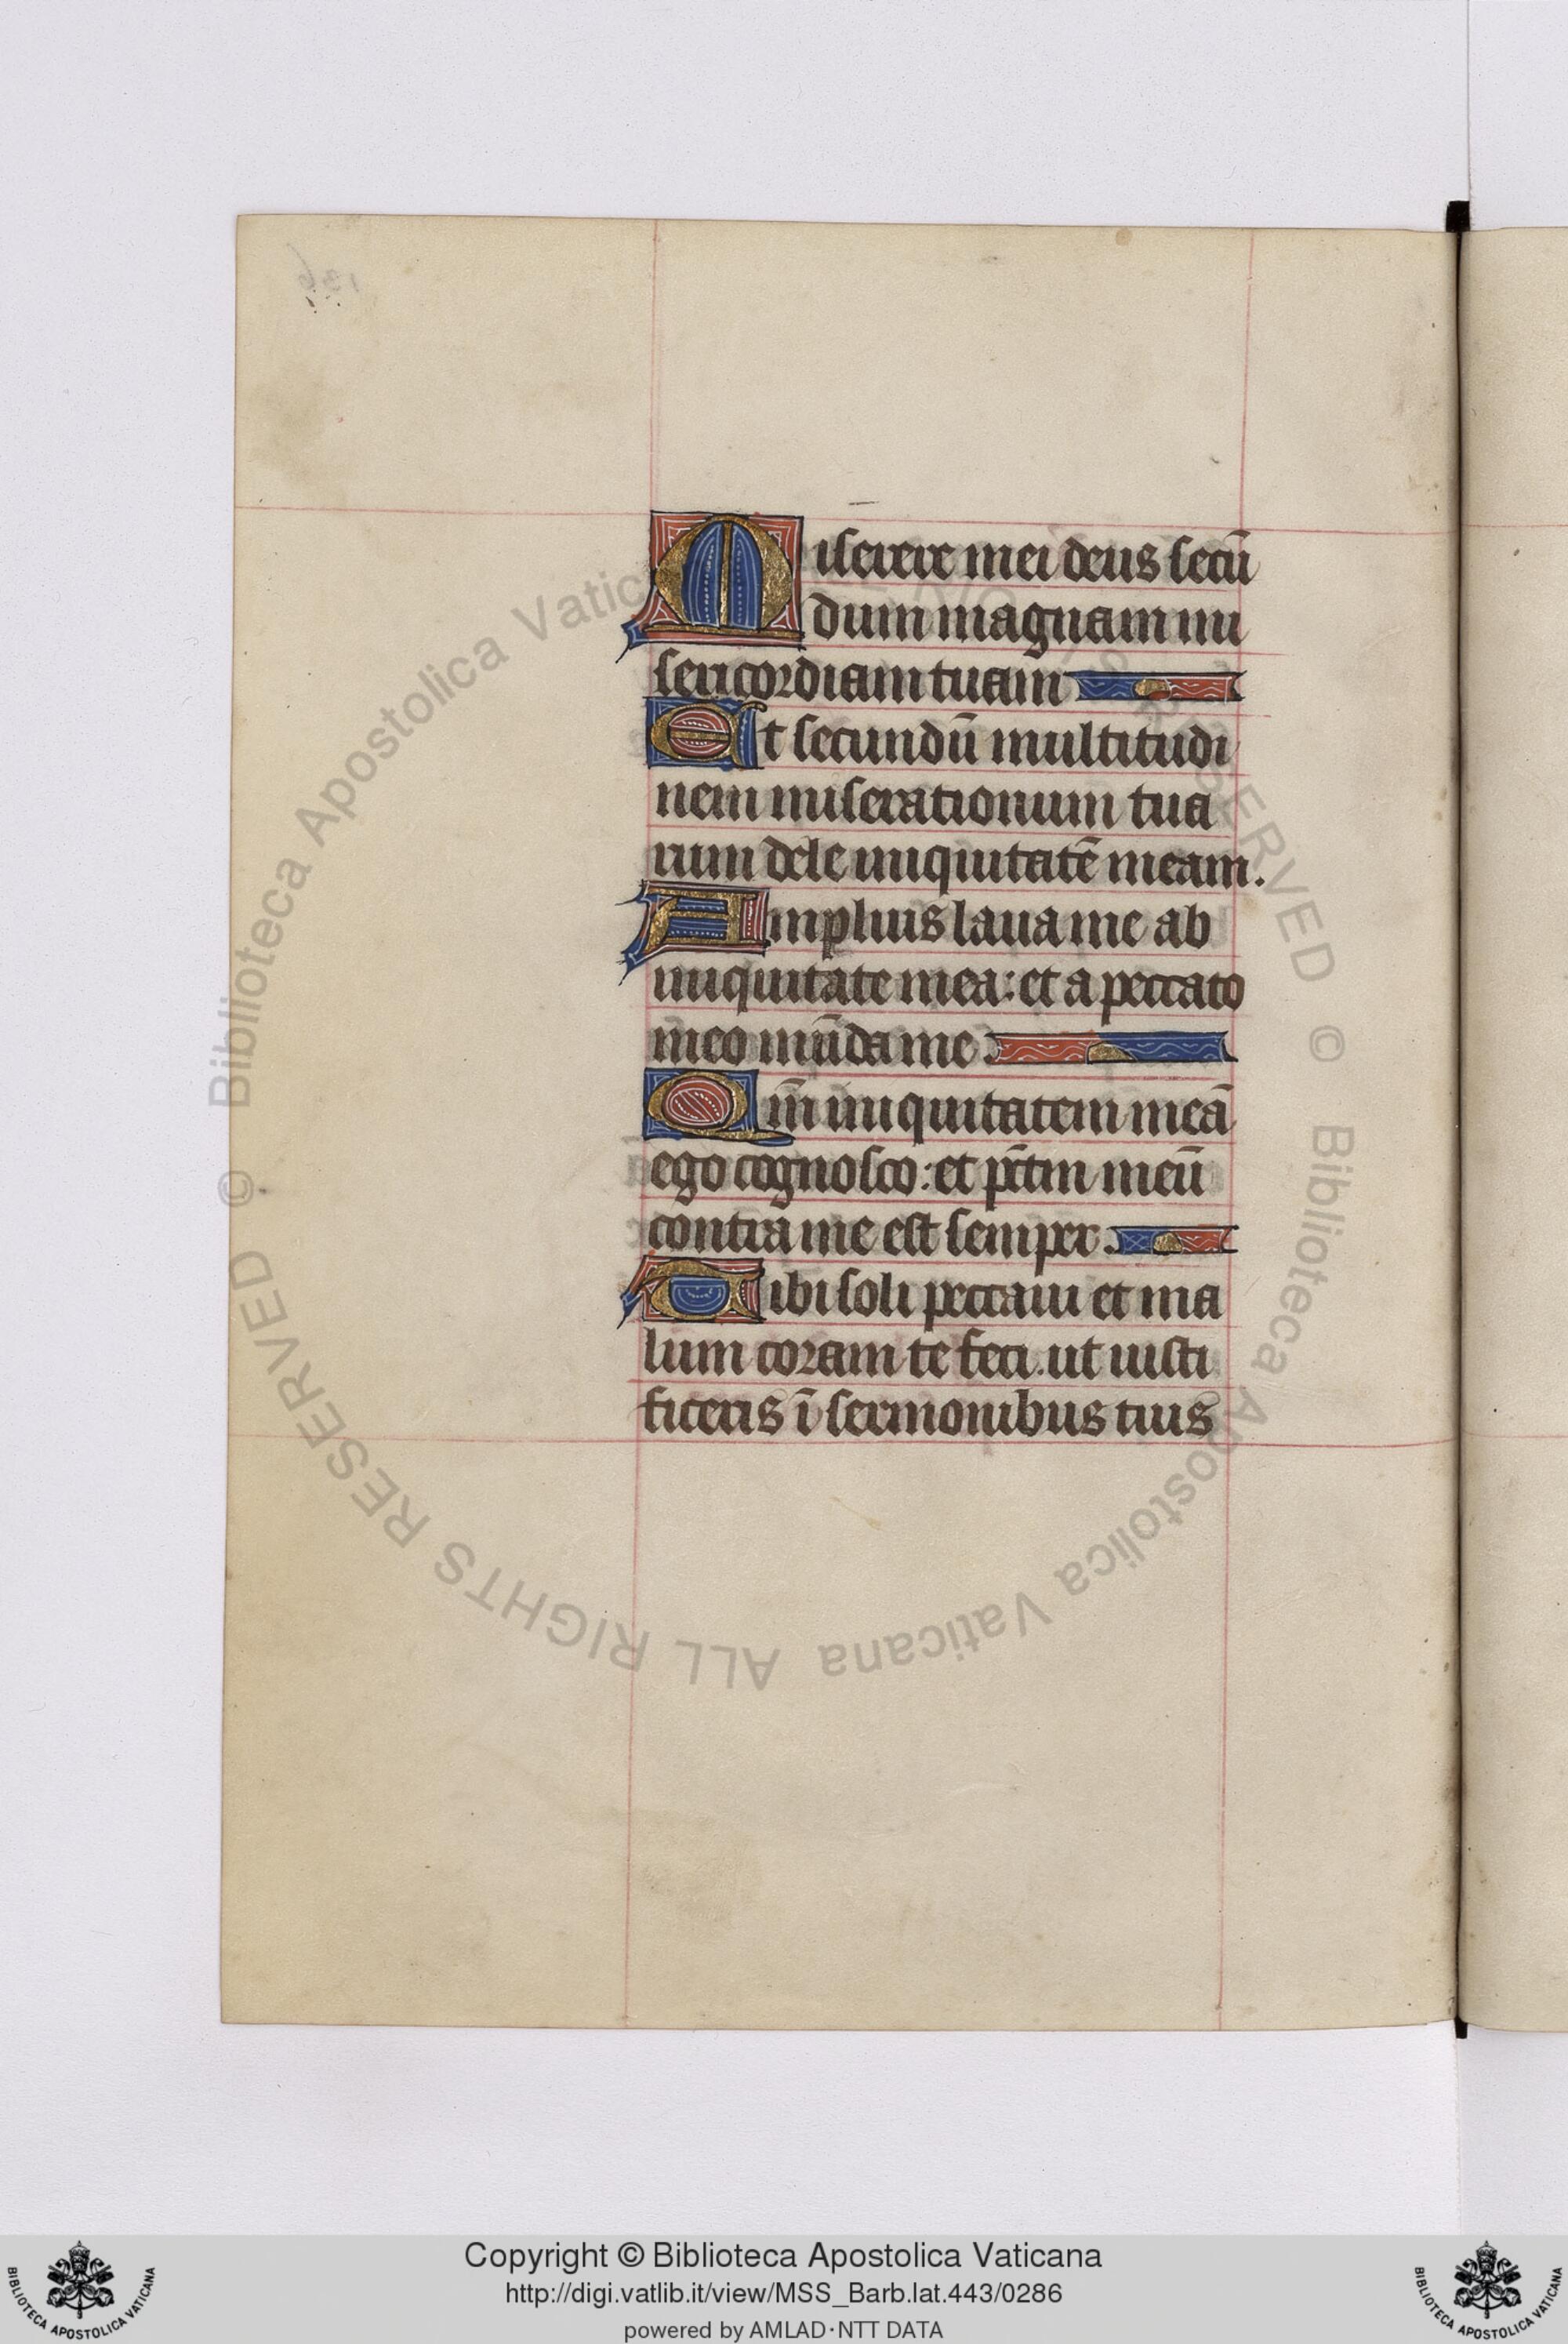 Miserere mei deus secū
dum magnam mi
sericordiam tuam
Et secundū multitudi
nem miserationum tua
rum dele iniquitatē meam.
Amplius laua me ab
iniquitate mea: et a peccato
meo mūda me
Qm̄ iniquitatem meā
ego cognosco: et pc̄tm meū
contra me est semper.
Tibi soli peccaui et ma
lum coram te feci. ut iusti
ficeris ī sermonibus tuis
© Biblioteca Apostolica Vaticana ALL RIGHTS RESERVED
© Biblioteca Apostolica Vaticana ALL RIGHTS RESERVED
Copyright © Biblioteca Apostolica Vaticana
http://digi.vatlib.it/view/MSS_Barb.lat.443/0286
powered by AMLAD·NTT DATA
BIBLIOTECA APOSTOLICA VATICANA
BIBLIOTECA APOSTOLICA VATICANA